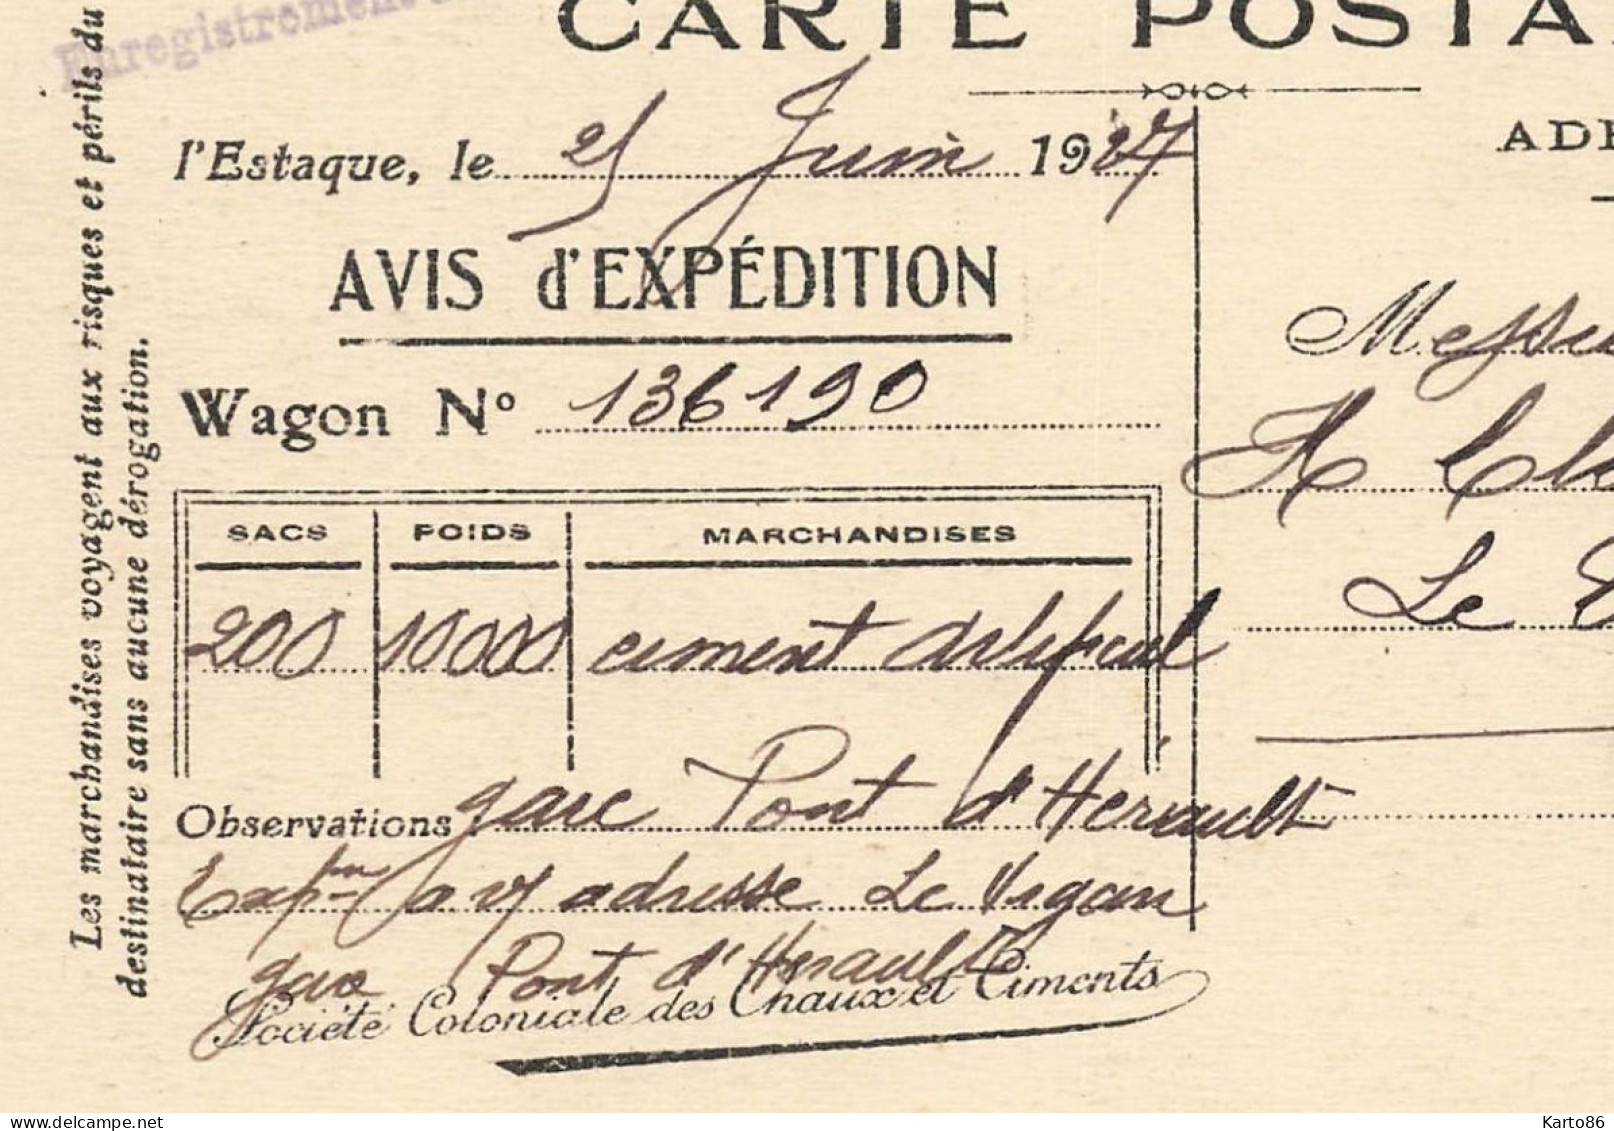 Enregistrement
CARTE POSTA
l'Estaque, le 25 Juin 1927
AVIS d'EXPÉDITION
Wagon N° 136190
SACS POIDS MARCHANDISES
200 10000 ciment artificiel
Observations gare Pont d'Hérault
Expon a v/ adresse Le Vigan
gare Pont d'Herault
Société Coloniale des Chaux et Ciments
Les marchandises voyagent aux risques et périls du
destinataire sans aucune dérogation.
ADR
Messieu
Le
Karto86